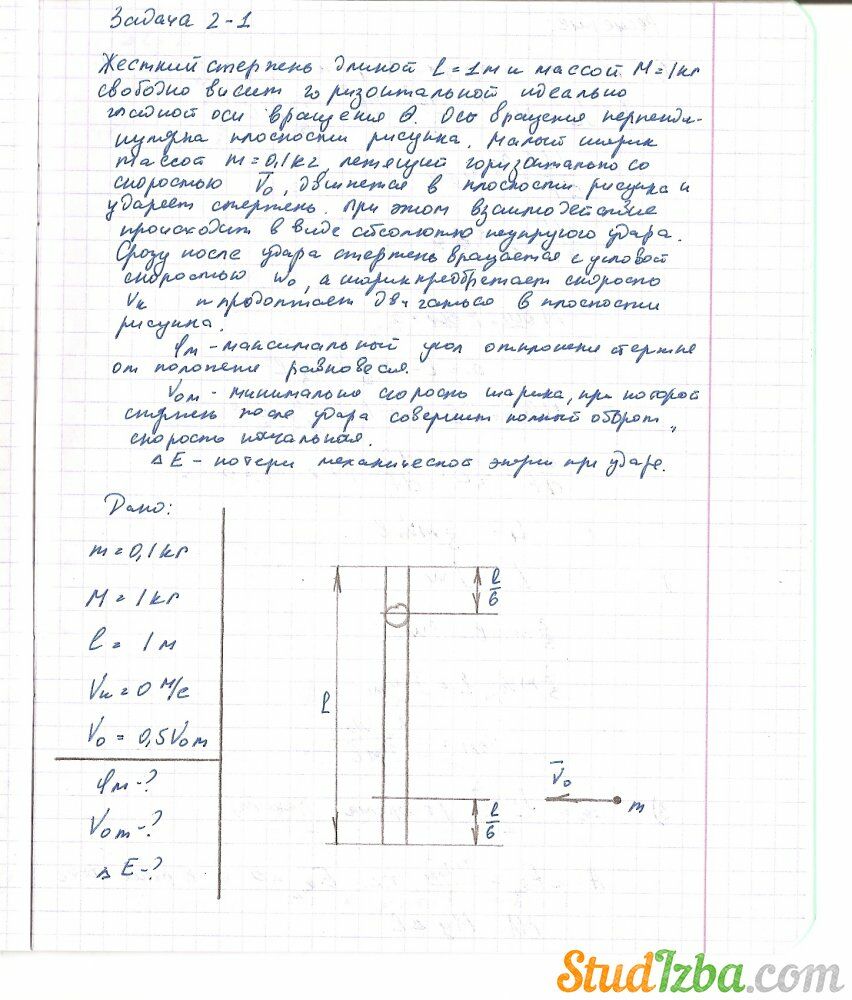 Задача 2-1
Жесткий стержень длиной l = 1м и массой M = 1кг
свободно висит горизонтальной идеально
гладкой оси вращения θ. Ось вращения перпенди-
кулярна плоскости рисунка. Малый шарик
массой m = 0,1кг, летящий горизонтально со
скоростью V₀, движется в плоскости рисунка и
ударяет стержень. При этом взаимодействие
происходит в виде абсолютно неупругого удара.
Сразу после удара стержень вращается с угловой
скоростью ω₀, а шарик преобретает скорость
Vк и продолжает двигаться в плоскости
рисунка.
φм - максимальный угол отклонения стержня
от положения равновесия.
V₀м - минимальна скорость шарика, при которой
стержень после удара совершит полный оборот,,
скорость начальная.
ΔE - потери механической энергии при ударе.
Дано:
m = 0,1кг
M = 1кг
l = 1м
Vк = 0 м/с
V₀ = 0,5V₀м
φм - ?
V₀м - ?
ΔE - ?
l/6
l
V₀
m
l/6
StudIzba.com